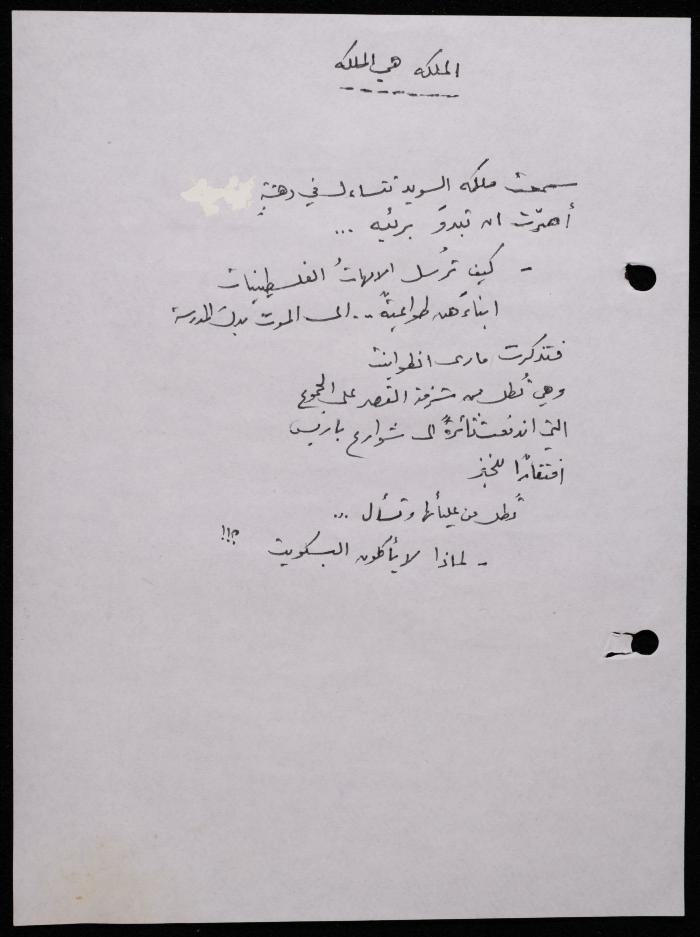 الملكه هي الملكه
سمعت ملكه السويد تتساءل في دهشةٍ
أصرّت ان تبدوَ بريئه ...
- كيف تُرسل الامهاتُ الفلسطينيات
ابناءَهن طواعيةً .. الى الموت بدل المدرسة
فتذكرت ماري انطوانيت
وهي تُطل من شرفة القصر على الجموع
التي اندفعت ثائرةً الى شوارع باريس
افتقادًا للخبز
تُطل من عليائها وتسأل ...
- لماذا لا يأكلون البسكويت ؟!!!